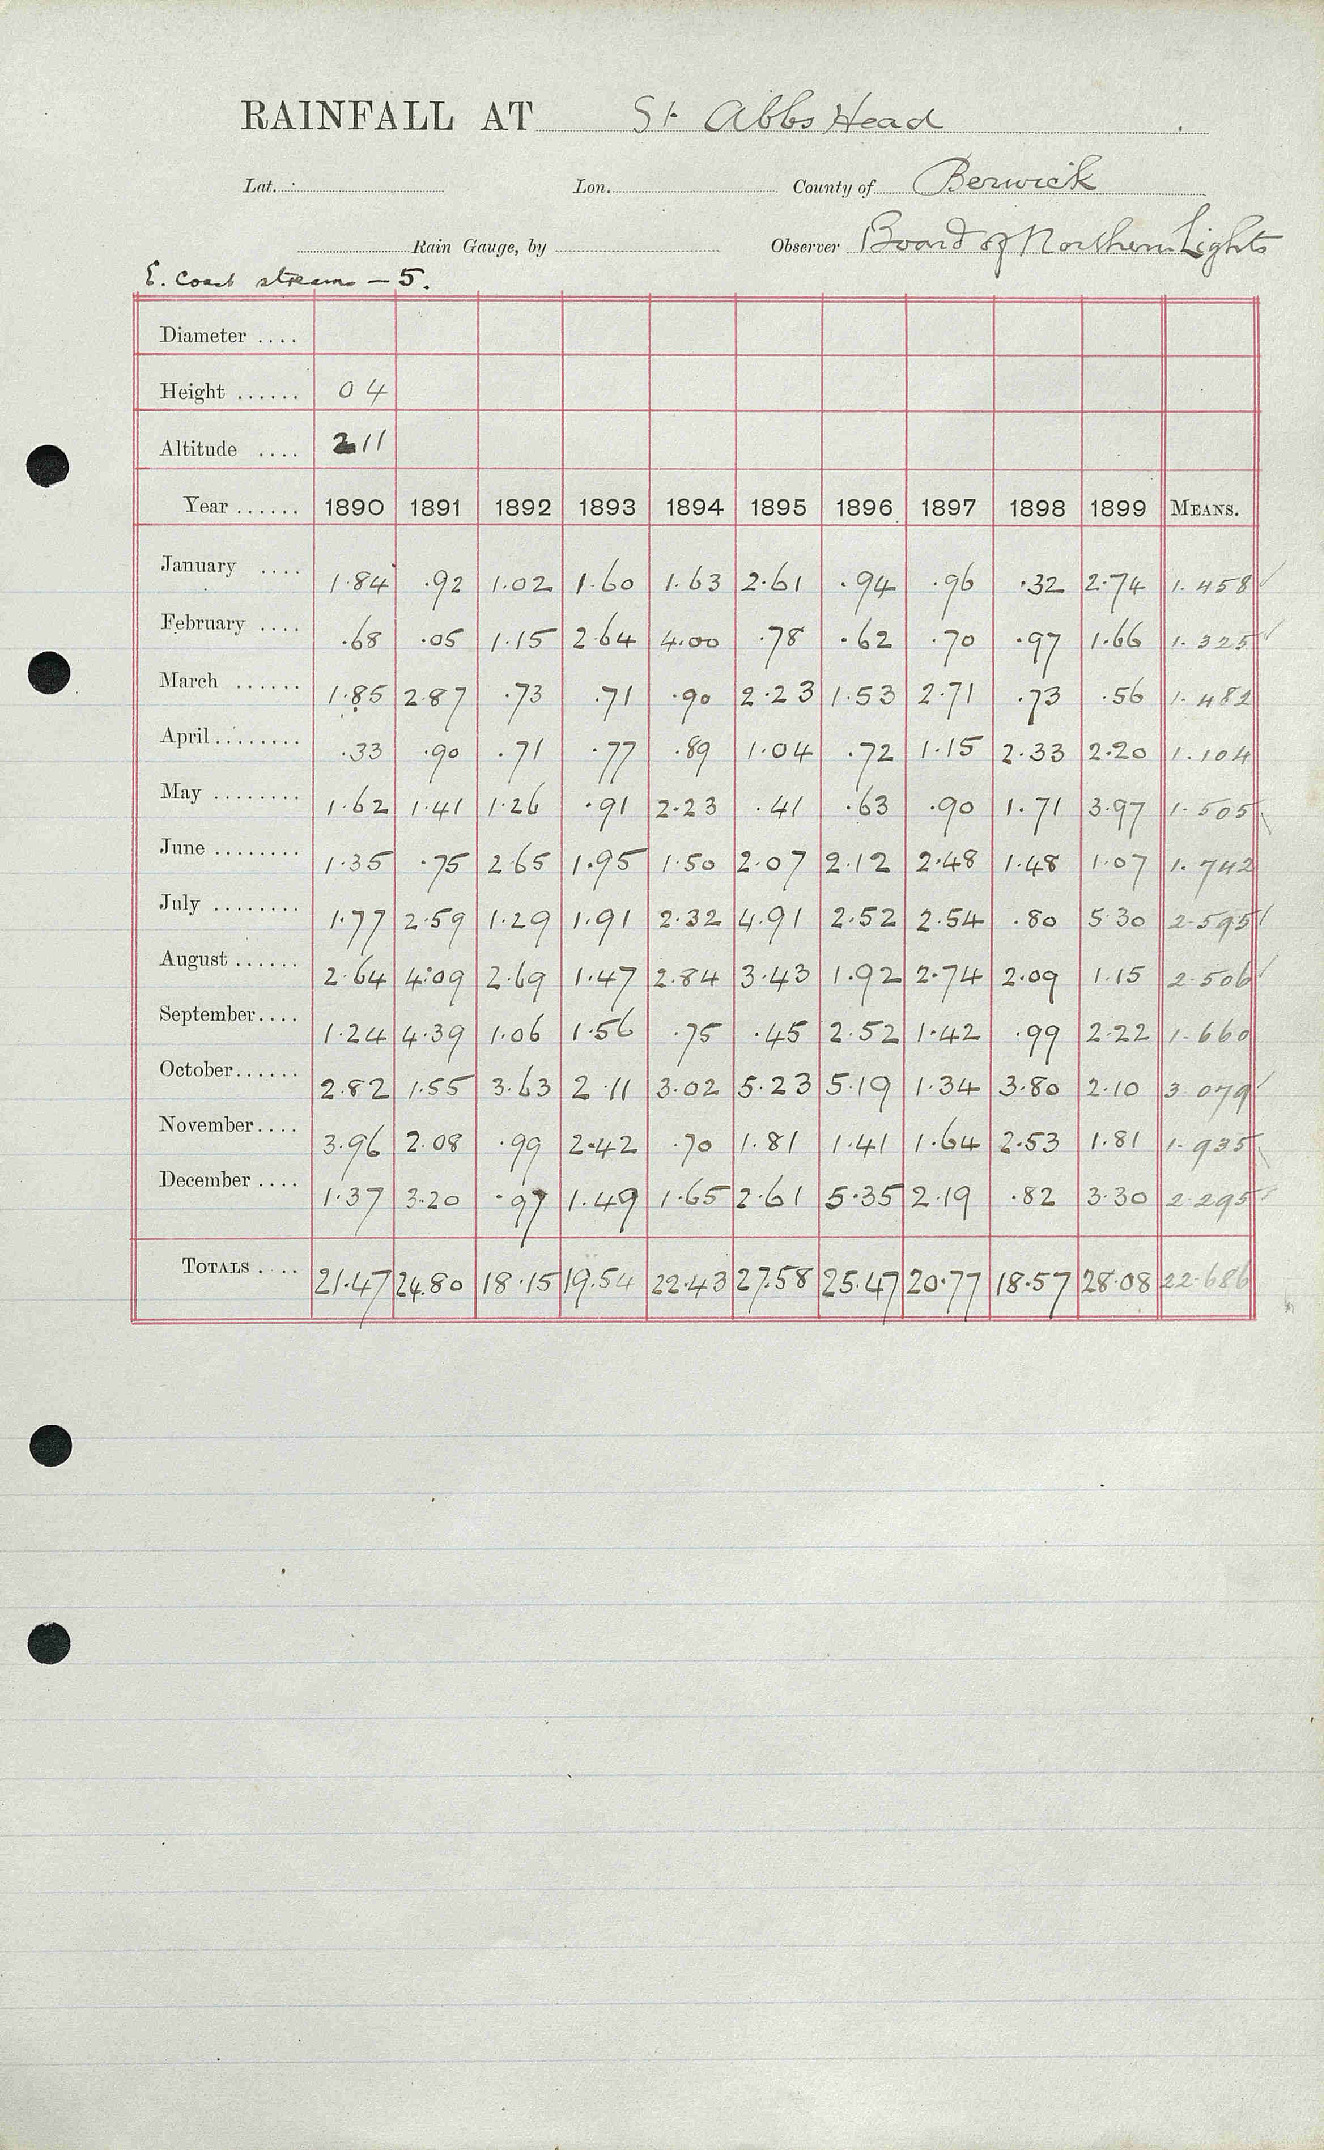 RAINFALL AT St Abbs Head
Lat. Lon. County of Berwick
Rain Gauge, by Observer Board of Northern Lights
E. Coast streams – 5.
Diameter ....
Height ...... 0 4
Altitude .... 211
Year ...... 1890 1891 1892 1893 1894 1895 1896 1897 1898 1899 MEANS.
January .... 1.84 .92 1.02 1.60 1.63 2.61 .94 .96 .32 2.74 1.458
February .... .68 .05 1.15 2.64 4.00 .78 .62 .70 .97 1.66 1.325
March ...... 1.85 2.87 .73 .71 .90 2.23 1.53 2.71 .73 .56 1.482
April ........ .33 .90 .71 .77 .89 1.04 .72 1.15 2.33 2.20 1.104
May ........ 1.62 1.41 1.26 .91 2.23 .41 .63 .90 1.71 3.97 1.505
June ........ 1.35 .75 2.65 1.95 1.50 2.07 2.12 2.48 1.48 1.07 1.742
July ........ 1.77 2.59 1.29 1.91 2.32 4.91 2.52 2.54 .80 5.30 2.595
August ...... 2.64 4.09 2.69 1.47 2.84 3.43 1.92 2.74 2.09 1.15 2.506
September.... 1.24 4.39 1.06 1.56 .75 .45 2.52 1.42 .99 2.22 1.660
October...... 2.82 1.55 3.63 2.11 3.02 5.23 5.19 1.34 3.80 2.10 3.079
November.... 3.96 2.08 .99 2.42 .70 1.81 1.41 1.64 2.53 1.81 1.935
December .... 1.37 3.20 .97 1.49 1.65 2.61 5.35 2.19 .82 3.30 2.295
TOTALS .... 21.47 24.80 18.15 19.54 22.43 27.58 25.47 20.77 18.57 28.08 22.686